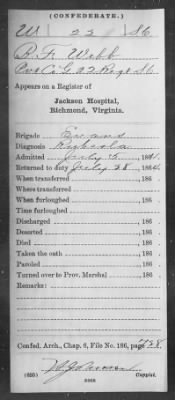 (CONFEDERATE.)
W 22 S.C.
R. F. Webb
Co. G 22 Regt S.C.
Appears on a Register of
Jackson Hospital,
Richmond, Virginia.
Brigade Evans
Diagnosis Rubeola
Admitted July 5 , 1864.
Returned to duty July 28 , 1864.
When transferred , 186 .
Where transferred
When furloughed , 186 .
Time furloughed
Discharged , 186 .
Deserted , 186 .
Died , 186 .
Taken the oath , 186 .
Paroled , 186 .
Turned over to Prov. Marshal , 186 .
Remarks:
Confed. Arch., Chap. 6, File No. 186, page 428
(635) Copyist.